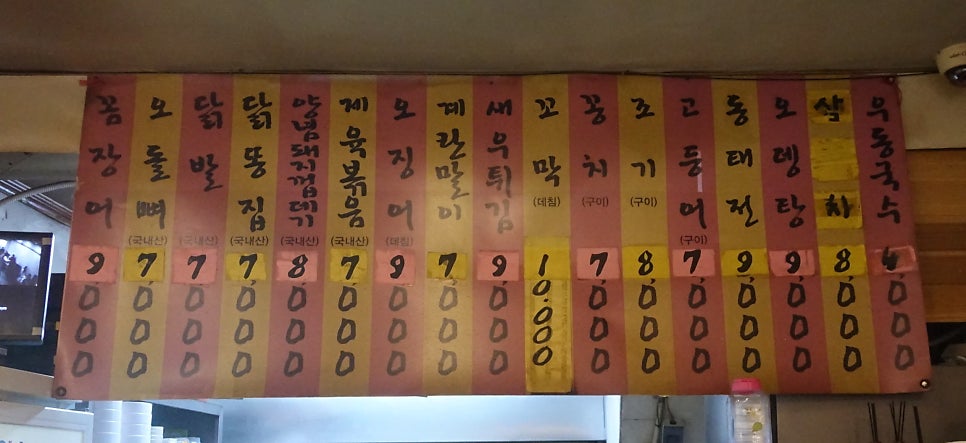 꼼장어 9,000
오돌뼈 (국내산) 7,000
닭발 (국내산) 7,000
닭똥집 (국내산) 7,000
양념돼지껍데기 (국내산) 8,000
제육볶음 (국내산) 7,000
오징어 (데침) 9,000
계란말이 7,000
새우튀김 9,000
꼬막 (데침) 10.000
꽁치 (구이) 7,000
조기 (구이) 8,000
고등어 (구이) 7,000
동태전 9,000
오뎅탕 9,000
8,000
우동국수 4,000